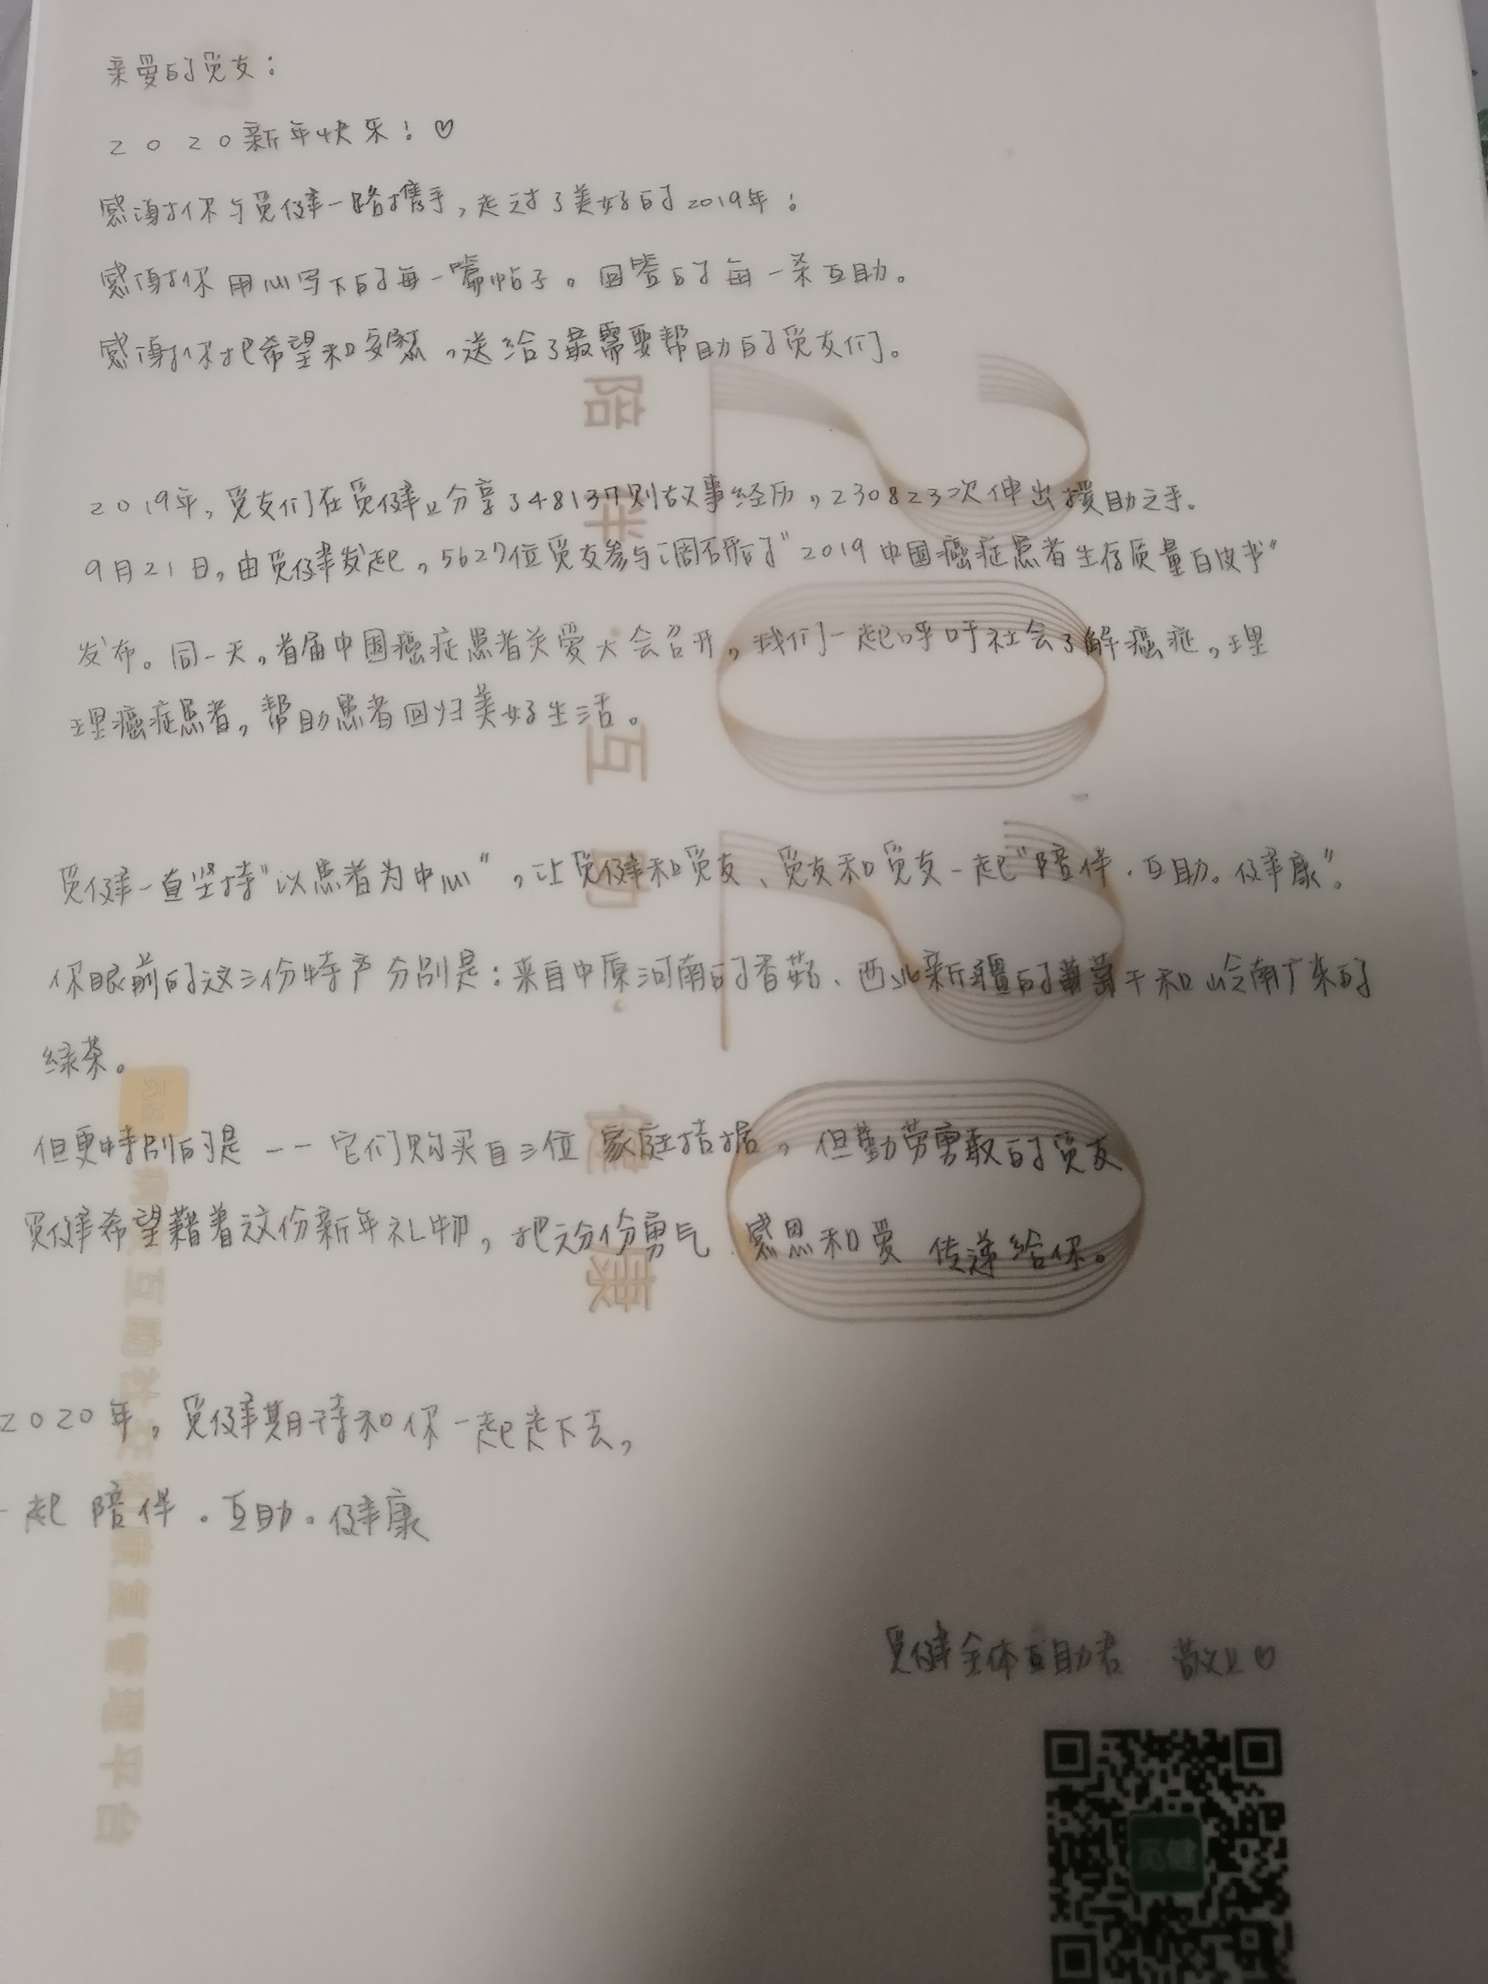 亲爱的觅友：
2020新年快乐！♡
感谢你与觅健一路携手，走过了美好的2019年；
感谢你用心写下的每一篇帖子。回答的每一条互助。
感谢你把希望和安慰，送给了最需要帮助的觅友们。
2019年，觅友们在觅健上分享了48137则故事经历，230823次伸出援助之手。
9月21日，由觅健发起，5627位觅友参与调研的"2019中国癌症患者生存质量白皮书"
发布。同一天，首届中国癌症患者关爱大会召开，我们一起呼吁社会了解癌症，理
理癌症患者，帮助患者回归美好生活。
觅健一直坚持"以患者为中心"，让觅健和觅友、觅友和觅友一起"陪伴．互助。健康"。
你眼前的这三份特产分别是：来自中原河南的香菇、西北新疆的葡萄干和岭南广东的
绿茶。
但更特别的是 -- 它们购买自三位 家庭拮据，但勤劳勇敢的觅友
觅健希望藉着这份新年礼物，把这份勇气 感恩和爱 传递给你。
2020年，觅健期待和你一起走下去，
一起 陪伴．互助。健康
觅健全体互助君 敬上♡
陪伴·互助·健康
2020
觅健